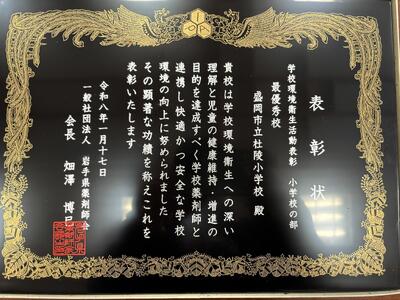 表彰状
学校環境衛生活動表彰　小学校の部
最優秀校
盛岡市立杜陵小学校 殿
貴校は学校環境衛生への深い
理解と児童の健康維持・増進の
目的を達成すべく学校薬剤師と
連携し快適かつ安全な学校
環境の向上に努められました
その顕著な功績を称えこれを
表彰いたします
令和八年一月十七日
一般社団法人　岩手県薬剤師会
会長　畑澤　博